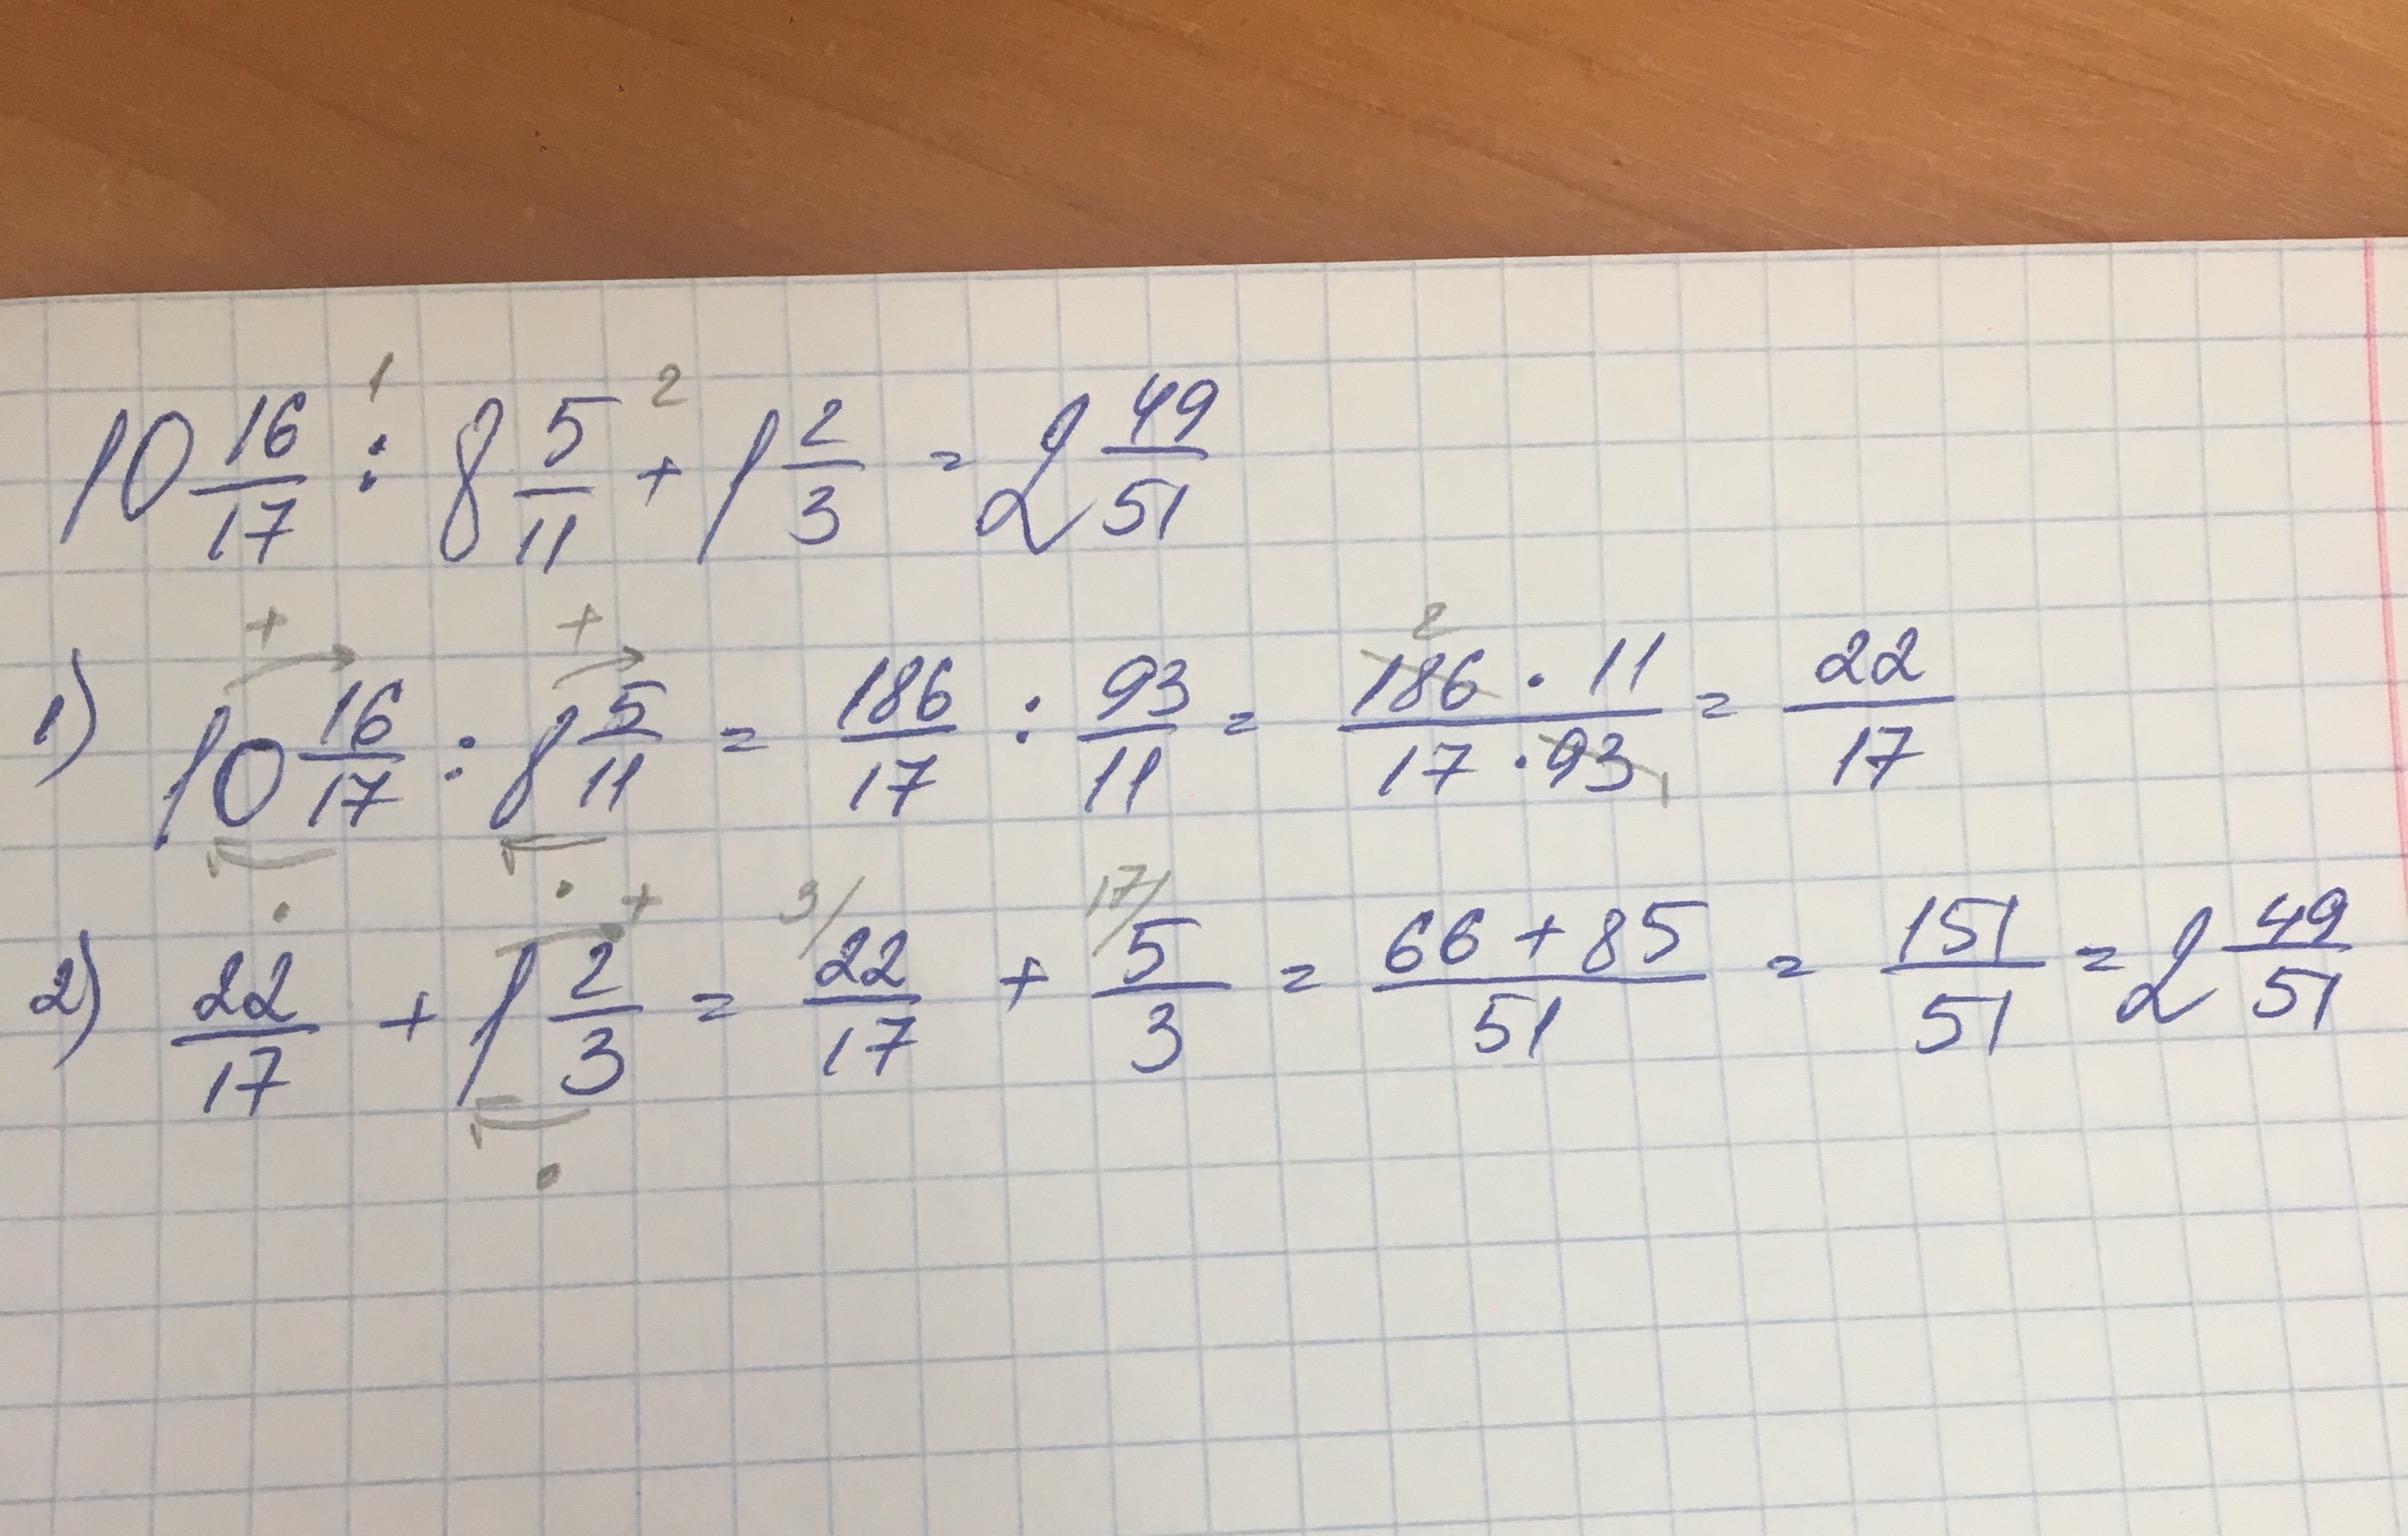 10 16/17 : 8 5/11 + 1 2/3 = 2 49/51
1) 10 16/17 : 8 5/11 = 186/17 : 93/11 = 186 · 11 / 17 · 93 = 22/17
2) 22/17 + 1 2/3 = 22/17 + 5/3 = 66 + 85 / 51 = 151/51 = 2 49/51